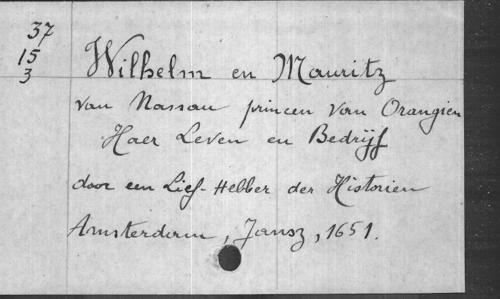 37
15
3
Wilhelm en Mauritz
van Nassau princen van Orangien
Haer Leven en Bedrijf
door een Lief-Hebber der Historien
Amsterdam, Jansz, 1651.